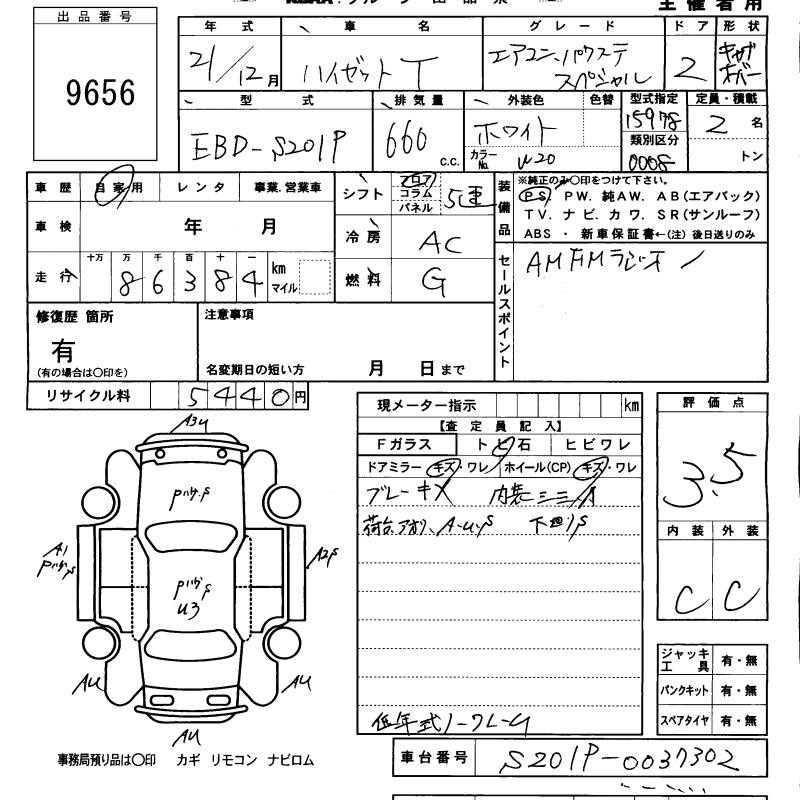 主催者用
出品番号
9656
年式 車名 グレード ドア 形状
21/12月 ハイゼットT エアコン、パワステ スペシャル 2 キャブオーバー
型式 排気量 外装色 色替 型式指定 定員・積載
EBD-S201P 660 c.c. ホワイト 15978 2 名
カラーNo. W20 類別区分 0008 トン
車歴 自家用 レンタ 事業.営業車
シフト フロア コラム パネル 5速
車検 年 月
冷房 AC
走行 十万 万 千 百 十 一 km マイル
86384
燃料 G
装備品
※純正のみ〇印をつけて下さい。
PS. PW. 純AW. AB(エアバック)
TV. ナビ. カワ. SR(サンルーフ)
ABS ・ 新車保証書←(注) 後日送りのみ
セールスポイント
AM FMラジオ
修復歴 箇所
有
(有の場合は〇印を)
注意事項
名変期日の短い方 月 日まで
リサイクル料 5440円
現メーター指示 km
【査定員記入】
Fガラス トビ石 ヒビワレ
ドアミラー キズ・ワレ ホイール(CP) キズ・ワレ
荷台アオリ、A-U.S 下廻りS
評価点
3.5
内装 外装
C C
A3U
Pハゲ.S
A1
Pハゲ.S
A2S
PハゲS
U3
AU
AU
AU
ジャッキ工具 有・無
パンクキット 有・無
スペアタイヤ 有・無
事務局預り品は〇印 カギ リモコン ナビロム
車台番号 S201P-0037302